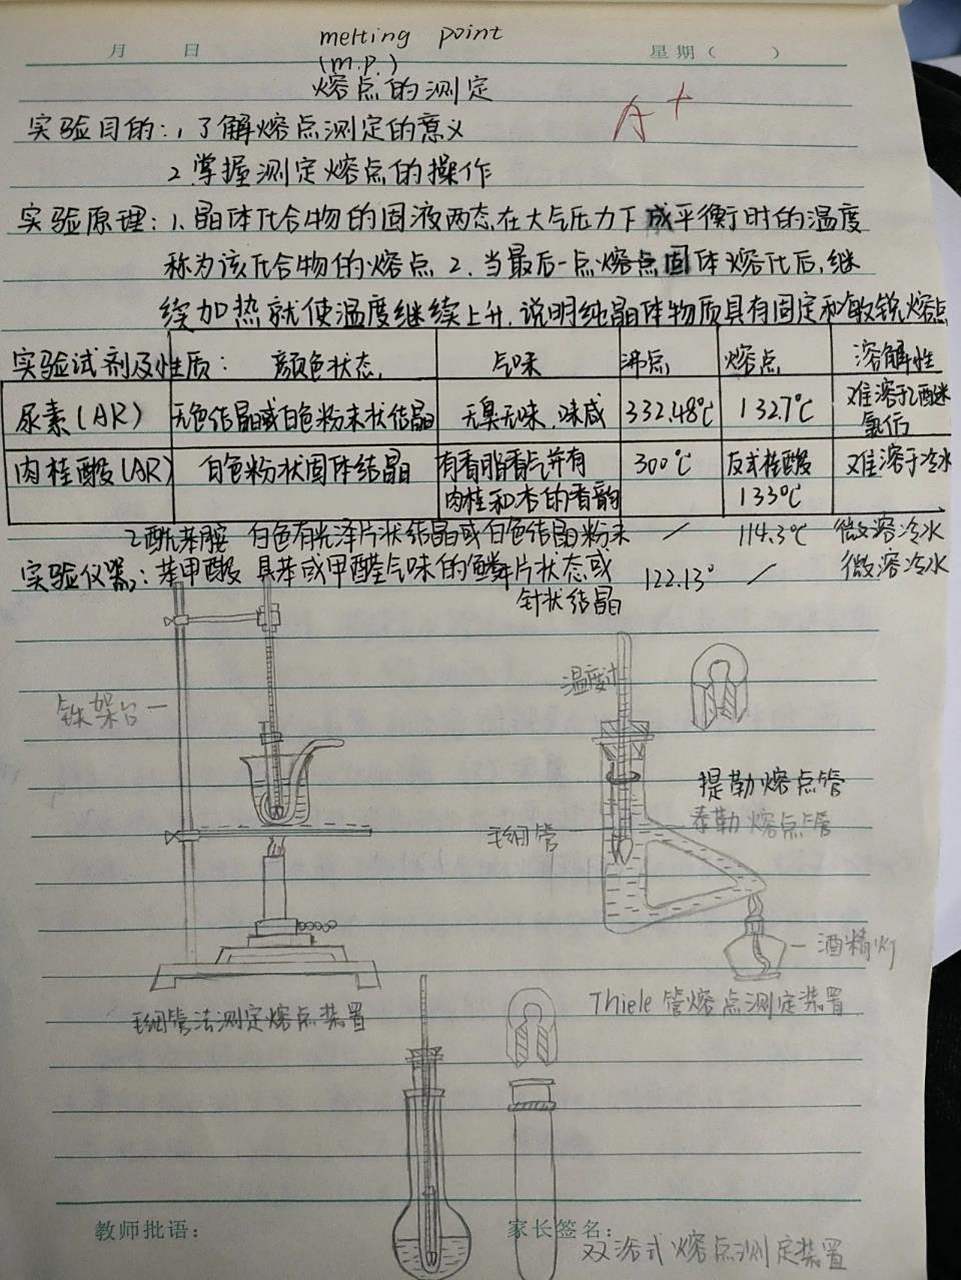 melting point
月 日 星期( )
(m.p.)
熔点的测定
A+
实验目的:1,了解熔点测定的意义
2.掌握测定熔点的操作
实验原理:1.晶体化合物的固液两态在大气压力下成平衡时的温度
称为该化合物的熔点 2.当最后一点熔点固体熔化后,继
续加热就使温度继续上升.说明纯晶体物质具有固定和敏锐熔点
实验试剂及性质: 颜色状态 气味 沸点 熔点 溶解性
尿素(AR) 无色结晶或白色粉末状结晶 无臭无味,味咸 332.48℃ 132.7℃ 难溶于乙醚
氯仿
肉桂酸(AR) 白色粉状固体结晶 有香脂香气并有 300℃ 反式桂酸 难溶于冷水
肉桂和杏的香韵 133℃
乙酰苯胺 白色有光泽片状结晶或白色结晶粉末 / 114.3℃ 微溶冷水
实验仪器: 苯甲酸 具苯或甲醛气味的鳞片状态或 122.13° / 微溶冷水
针状结晶
温度计
铁架台
提勒熔点管
泰勒熔点管
毛细管
酒精灯
Thiele管熔点测定装置
毛细管法测定熔点装置
教师批语: 家长签名:
双浴式熔点测定装置